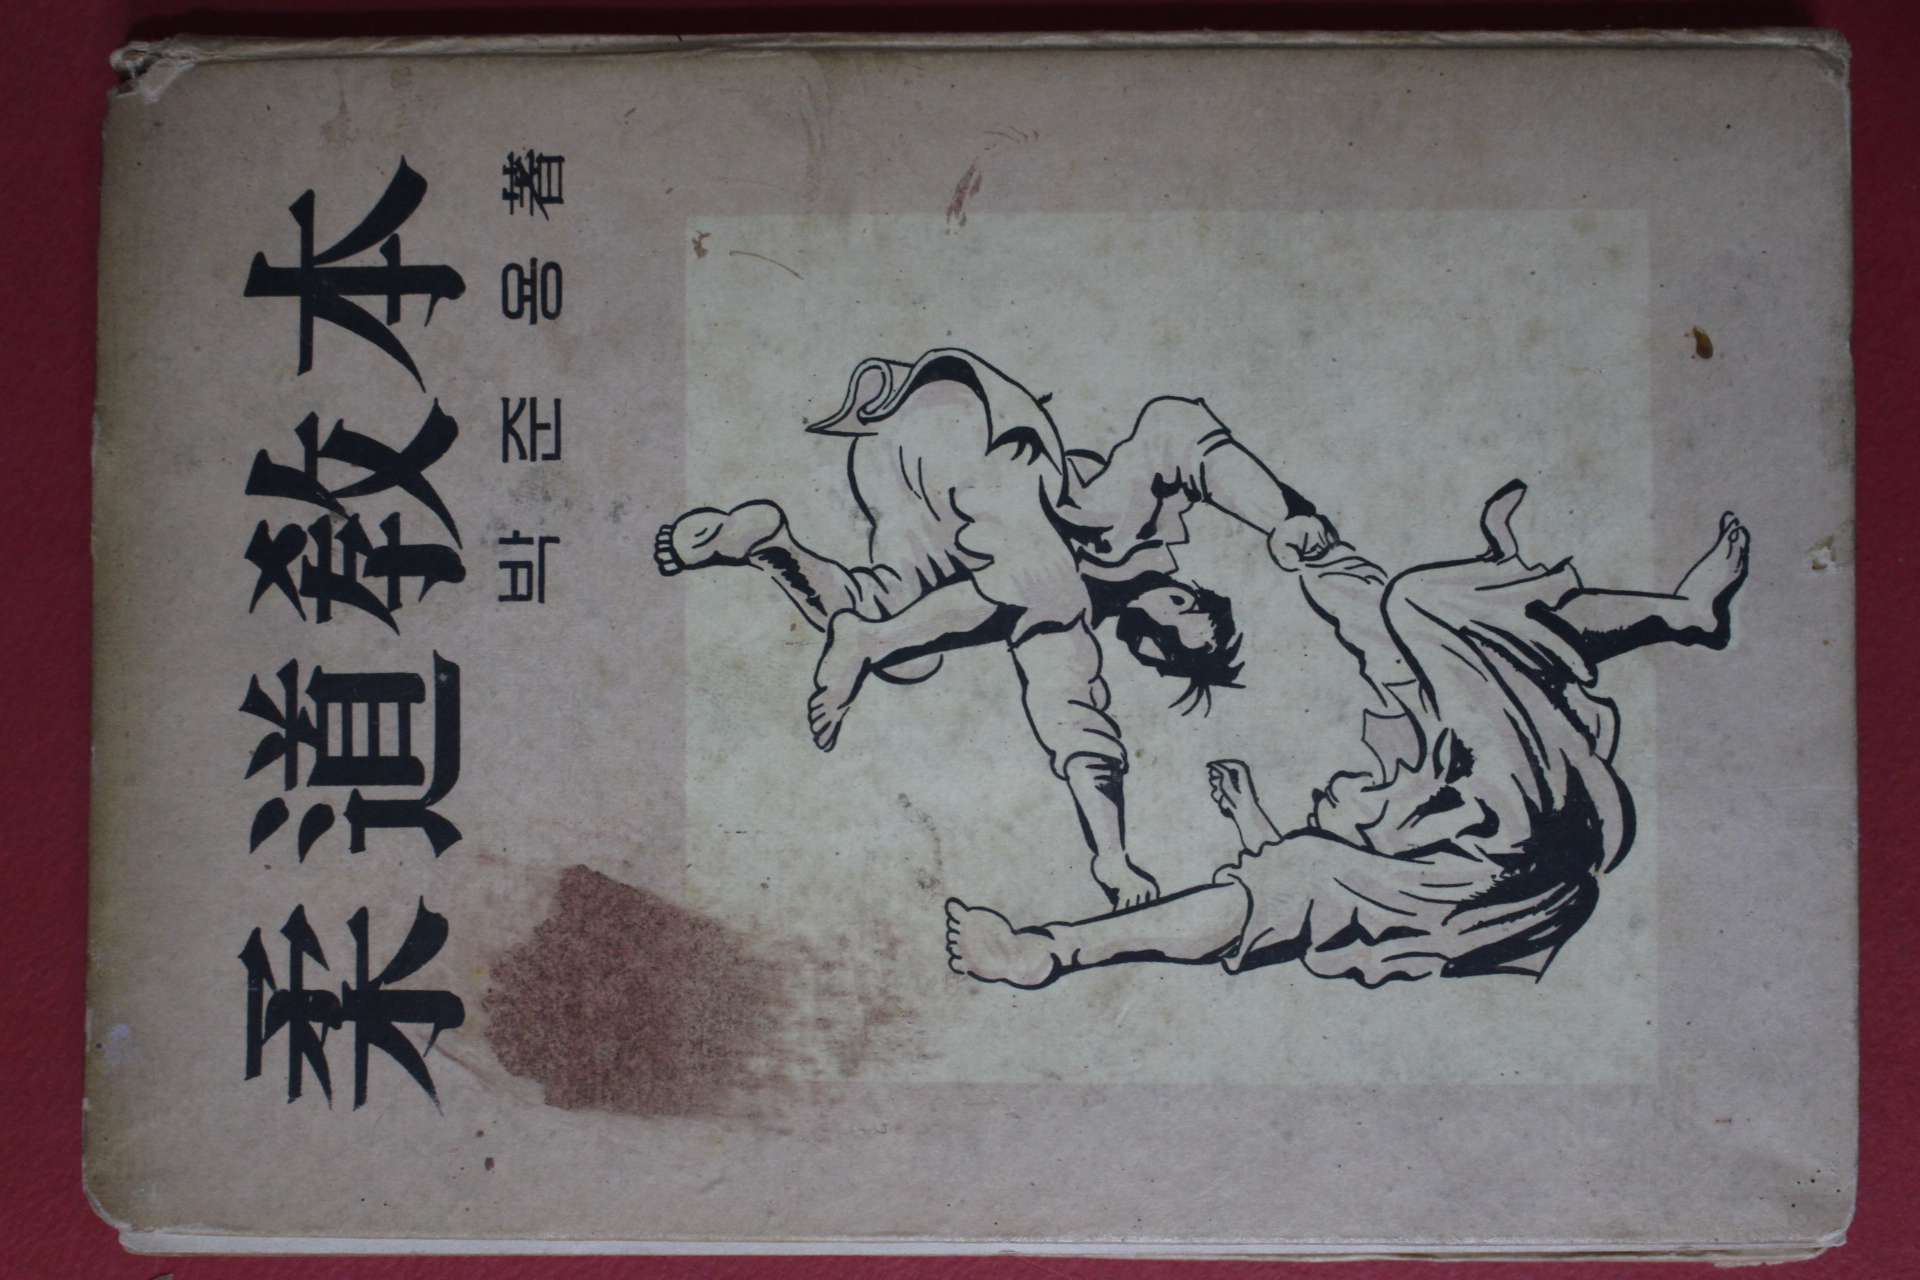 柔道敎本
박준용 著